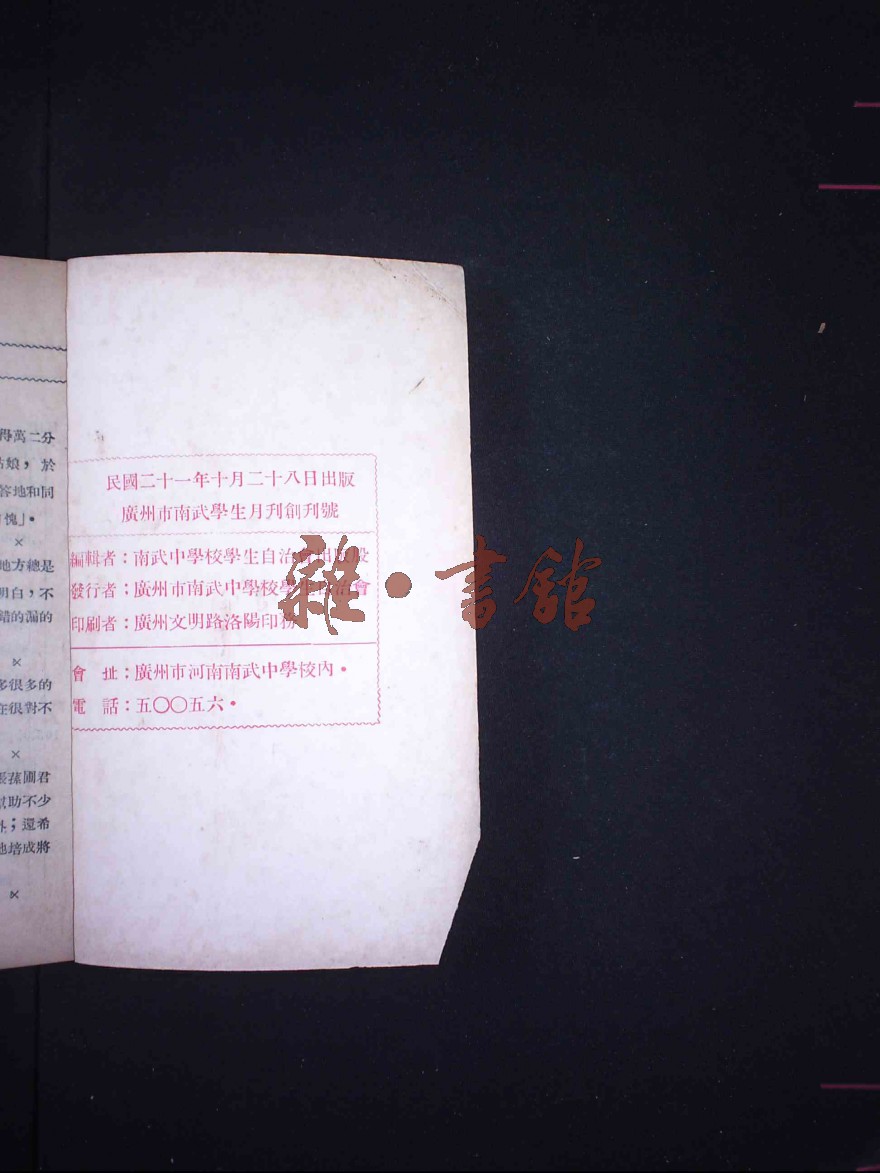 民國二十一年十月二十八日出版
廣州市南武學生月刊創刊號
編輯者：南武中學校學生自治會出版股
發行者：廣州市南武中學校學生自治會
印刷者：廣州文明路洛陽印務
會　址：廣州市河南南武中學校內・
電　話：五〇〇五六・
得萬二分
姑娘，於
答地和同
愧」・
×
地方總是
明白，不
錯的漏的
×
多很多的
在很對不
×
圃君
幫助不少
外；還希
地培成將
×
雜・書館